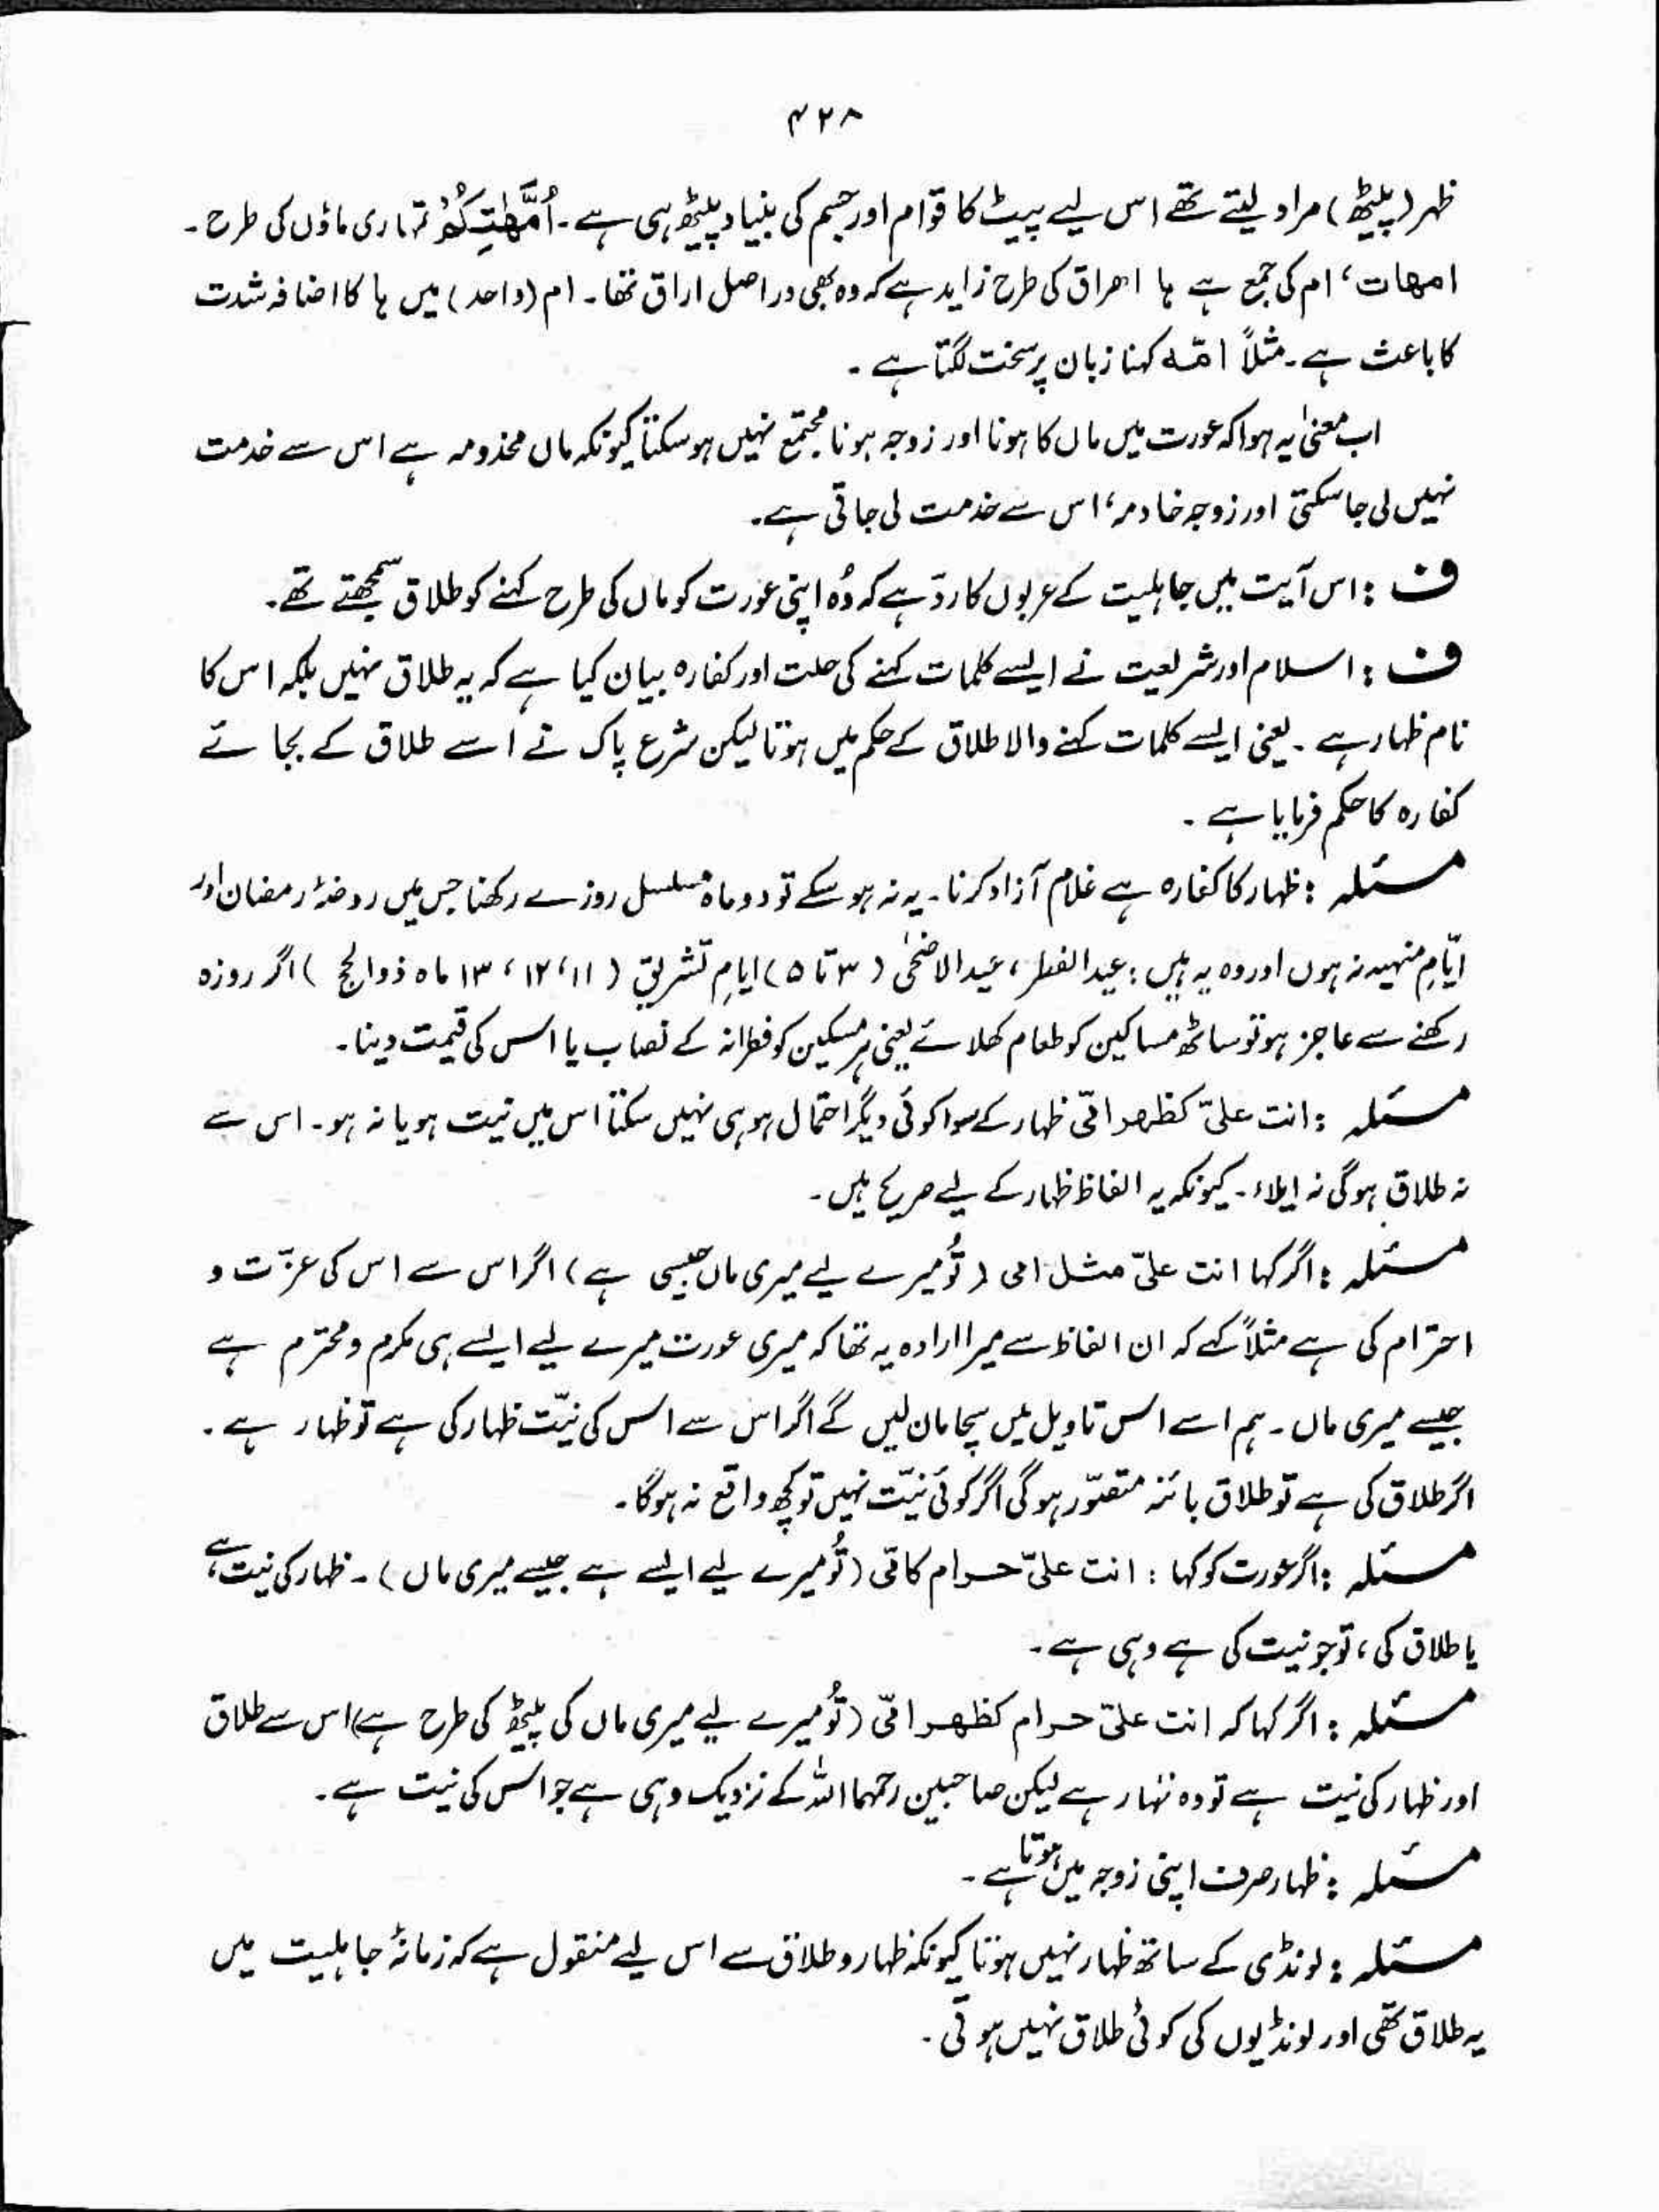 ۴۲۸
ظہر (پیٹھ) مراد لیتے تھے اس لیے پیٹ کا قوام اور جسم کی بنیاد پیٹھ ہی ہے۔ اُمَّھٰتِکُمْ تمہاری ماؤں کی طرح۔
امھات، ام کی جمع ہے ہا اھراق کی طرح زاید ہے کہ وہ بھی دراصل اراق تھا۔ ام (واحد) میں ہا کا اضافہ شدت
کا باعث ہے۔ مثلاً امّہ کہنا زبان پر سخت لگتا ہے۔
اب معنیٰ یہ ہوا کہ عورت میں ماں کا ہونا اور زوجہ ہونا مجتمع نہیں ہو سکتا کیونکہ ماں مخدومہ ہے اس سے خدمت
نہیں لی جا سکتی اور زوجہ خادمہ، اس سے خدمت لی جاتی ہے۔
ف : اس آیت میں جاہلیت کے عربوں کا ردّ ہے کہ وُہ اپنی عورت کو ماں کی طرح کہنے کو طلاق سمجھتے تھے۔
ف : اسلام اور شریعت نے ایسے کلمات کہنے کی حلت اور کفارہ بیان کیا ہے کہ یہ طلاق نہیں بلکہ اس کا
نام ظہار ہے۔ یعنی ایسے کلمات کہنے والا طلاق کے حکم میں ہوتا لیکن شرع پاک نے اسے طلاق کے بجائے
کفارہ کا حکم فرمایا ہے۔
مسئلہ : ظہار کا کفارہ ہے غلام آزاد کرنا۔ یہ نہ ہو سکے تو دو ماہ مسلسل روزے رکھنا جس میں روضۂ رمضان اور
ایّامِ منہیہ نہ ہوں اور وہ یہ ہیں : عید الفطر، عید الاضحیٰ (۳ تا ۵) ایامِ تشریق (۱۱، ۱۲، ۱۳ ماہ ذوالحج) اگر روزہ
رکھنے سے عاجز ہو تو ساٹھ مساکین کو طعام کھلائے یعنی ہر مسکین کو فطرانہ کے نصاب یا اس کی قیمت دینا۔
مسئلہ : انت علیّ کظھر امّی ظہار کے سوا کوئی دیگر احتمال ہو ہی نہیں سکتا اس میں نیت ہو یا نہ ہو۔ اس سے
نہ طلاق ہوگی نہ ایلاء۔ کیونکہ یہ الفاظ ظہار کے لیے صریح ہیں۔
مسئلہ : اگر کہا انت علیّ مثل امی (تُو میرے لیے میری ماں جیسی ہے) اگر اس سے اس کی عزّت و
احترام کی ہے مثلاً کہے کہ ان الفاظ سے میرا ارادہ یہ تھا کہ میری عورت میرے لیے ایسے ہی مکرم و محترم ہے
جیسے میری ماں۔ ہم اسے اس تاویل میں سچا مان لیں گے اگر اس سے اس کی نیّت ظہار کی ہے تو ظہار ہے۔
اگر طلاق کی ہے تو طلاق بائنہ متصوّر ہوگی اگر کوئی نیّت نہیں تو کچھ واقع نہ ہوگا۔
مسئلہ : اگر عورت کو کہا : انت علیّ حرام کامّی (تُو میرے لیے ایسے ہے جیسے میری ماں)۔ ظہار کی نیت ہے،
یا طلاق کی، تو جو نیت کی ہے وہی ہے۔
مسئلہ : اگر کہا کہ انت علیّ حرام کظھر امّی (تُو میرے لیے میری ماں کی پیٹھ کی طرح ہے) اس سے طلاق
اور ظہار کی نیت ہے تو وہ ظہار ہے لیکن صاحبین رحمہما اللہ کے نزدیک وہی ہے جو اس کی نیت ہے۔
مسئلہ : ظہار صرف اپنی زوجہ میں ہوتا ہے۔
مسئلہ : لونڈی کے ساتھ ظہار نہیں ہوتا کیونکہ ظہار و طلاق سے اس لیے منقول ہے کہ زمانۂ جاہلیت میں
یہ طلاق تھی اور لونڈیوں کی کوئی طلاق نہیں ہوتی۔